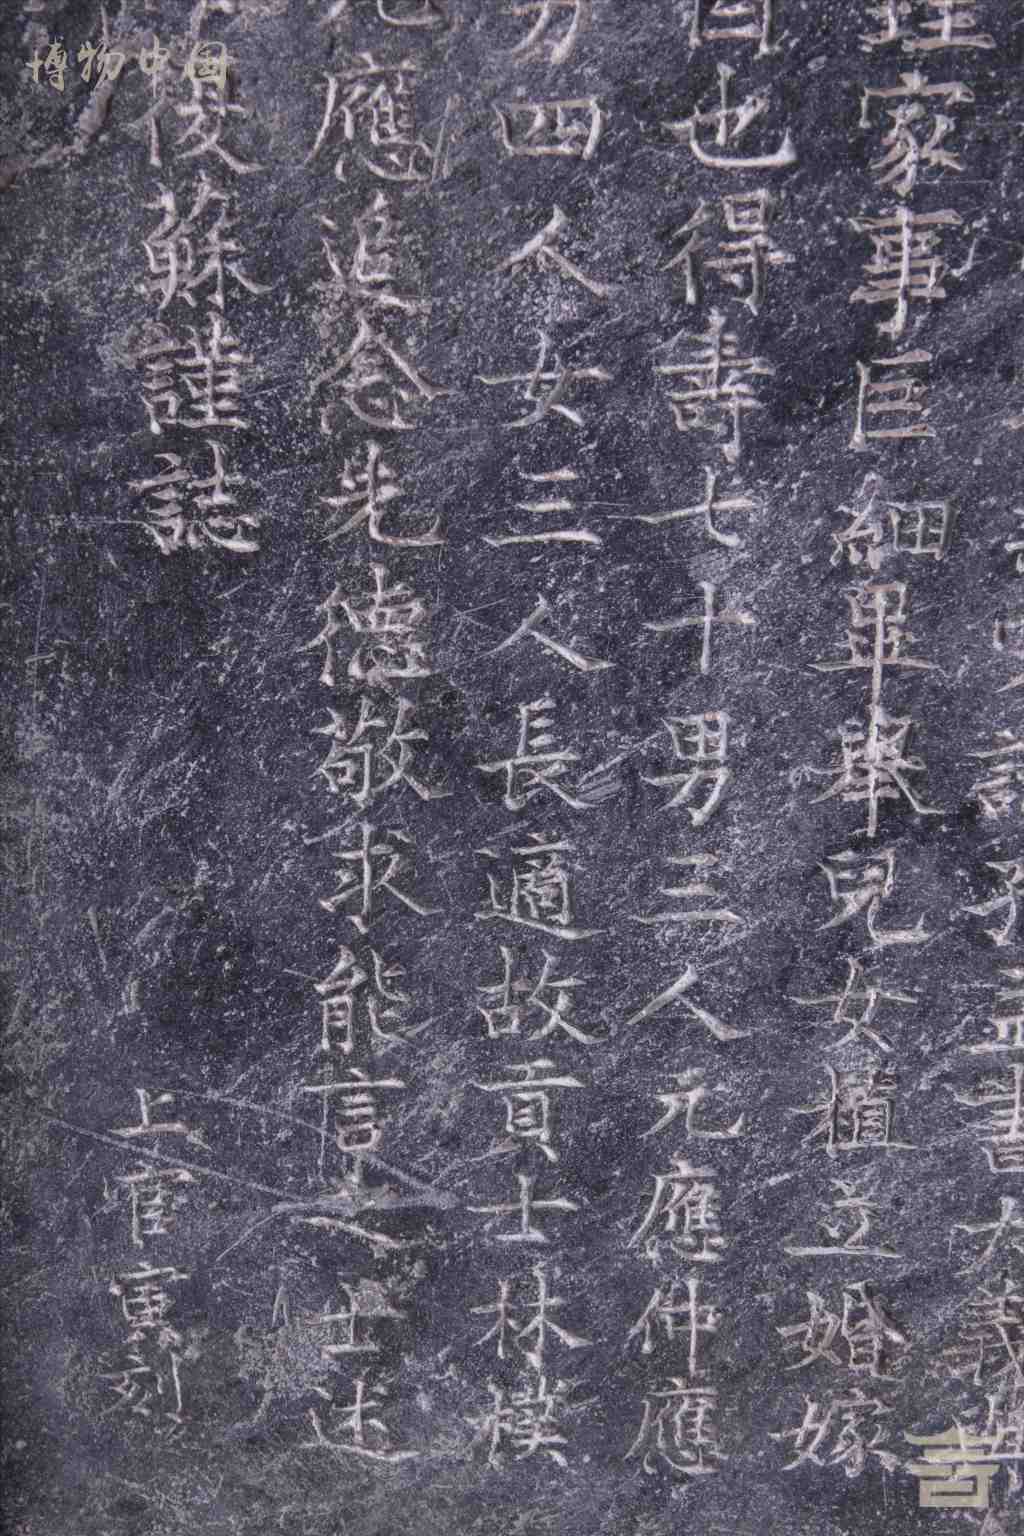 博物中国
書大義
理家事巨細畢舉兒女植立婚嫁
也得壽七十男三人元應仲應
男四人女三人長適故貢士林樸
應追念先德敬求能言之士述
後蘇謹誌
上官寅刻